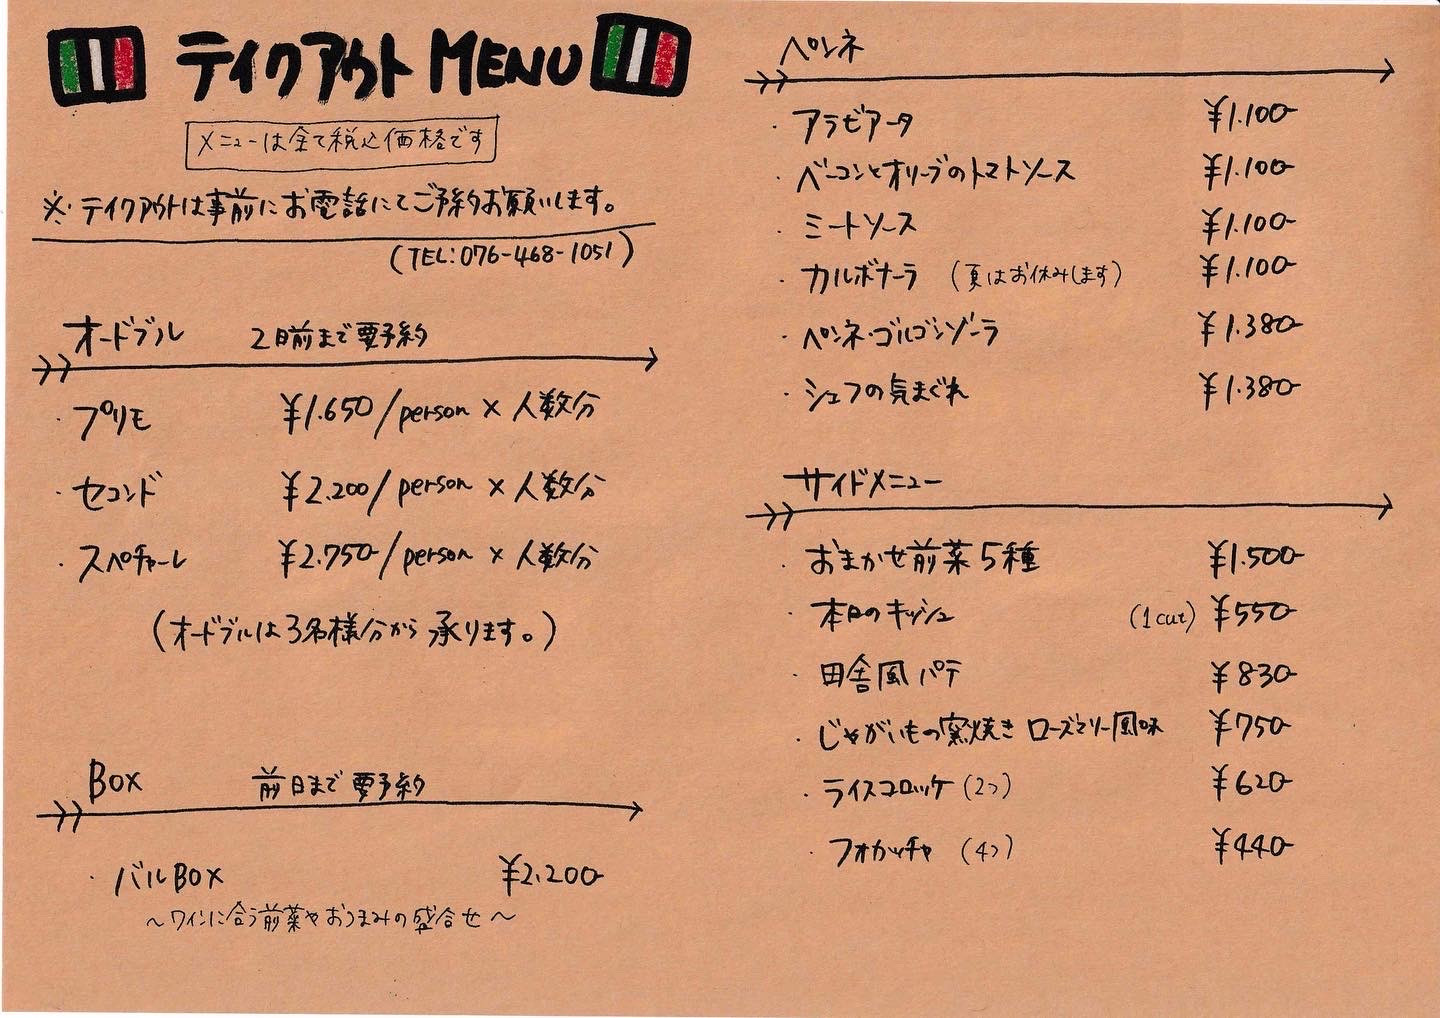 テイクアウト MENU
メニューは全て税込価格です
※・テイクアウトは事前にお電話にてご予約お願いします。
(TEL:076-468-1051)
オードブル 2日前まで要予約
・プリモ ¥1.650/person × 人数分
・セコンド ¥2.200/person × 人数分
・スペチャーレ ¥2.750-/person × 人数分
(オードブルは3名様分から承ります。)
Box 前日まで要予約
・バルBOX ¥2.200-
～ワインに合う前菜やおつまみの盛合せ～
ペンネ
・アラビアータ ¥1.100-
・ベーコンとオリーブのトマトソース ¥1.100-
・ミートソース ¥1.100-
・カルボナーラ (夏はお休みします) ¥1.100-
・ペンネ・ゴルゴンゾーラ ¥1.380-
・シェフの気まぐれ ¥1.380-
サイドメニュー
・おまかせ前菜5種 ¥1.500-
・本日のキッシュ (1cut) ¥550-
・田舎風パテ ¥830-
・じゃがいもの窯焼き ローズマリー風味 ¥750-
・ライスコロッケ (2つ) ¥620-
・フォカッチャ (4つ) ¥440-